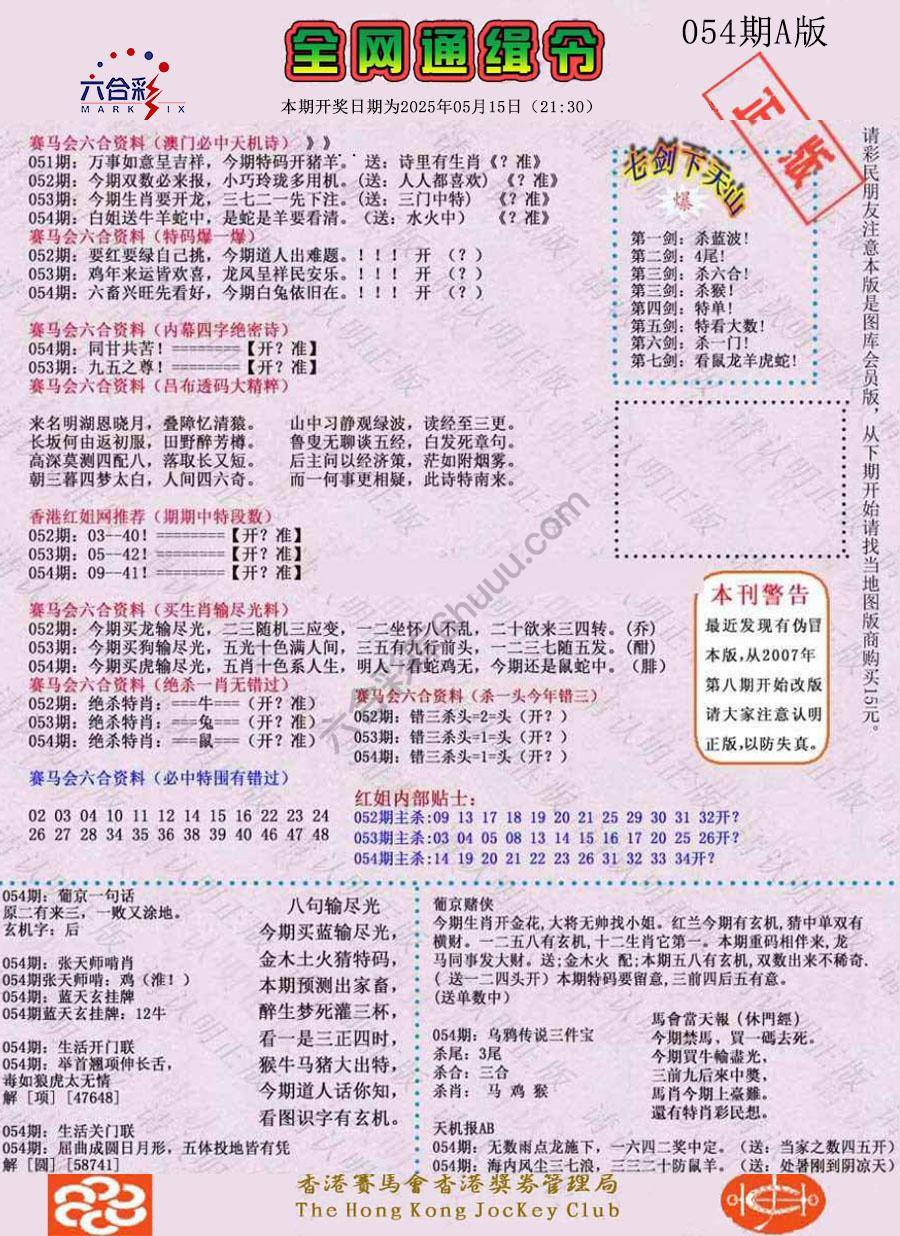 全网通缉令
054期A版
六合彩
MARK SIX
本期开奖日期为2025年05月15日（21:30）
正版
赛马会六合资料（澳门必中天机诗）》》
051期：万事如意呈吉祥，今期特码开猪羊。．送：诗里有生肖《？准》
052期：今期双数必来报，小巧玲珑多用机。（送：人人都喜欢）《？准》
053期：今期生肖要开龙，三七二一先下注。（送：三门中特）《？准》
054期：白姐送牛羊蛇中，是蛇是羊要看清。（送：水火中）《？准》
赛马会六合资料（特码爆一爆）
052期：要红要绿自己挑，今期道人出难题。！！！ 开 （？）
053期：鸡年来运皆欢喜，龙凤呈祥民安乐。！！！ 开 （？）
054期：六畜兴旺先看好，今期白兔依旧在。！！！ 开 （？）
赛马会六合资料（内幕四字绝密诗）
054期：同甘共苦！========【开？准】
053期：九五之尊！========【开？准】
赛马会六合资料（吕布透码大精粹）
来名明湖恩晓月，叠障忆清猿。 山中习静观绿波，读经至三更。
长坂何由返初服，田野醉芳樽。 鲁叟无聊谈五经，白发死章句。
高深莫测四配八，落取长又短。 后主问以经济策，茫如附烟雾。
朝三暮四梦太白，人间四六奇。 而一何事更相疑，此诗特南来。
香港红姐网推荐（期期中特段数）
052期：03--40！========【开？准】
053期：05--42！========【开？准】
054期：09--41！========【开？准】
赛马会六合资料（买生肖输尽光料）
052期：今期买龙输尽光，二三随机三应变，一二坐怀八不乱，二十欲来三四转。(乔)
053期：今期买狗输尽光，五光十色满人间，三五有九行前头，一二三七随五发。(酣)
054期：今期买虎输尽光，五肖十色系人生，明人一看蛇鸡无，今期还是鼠蛇中。（腓）
赛马会六合资料（绝杀一肖无错过）
052期：绝杀特肖：===牛===（开？准）
053期：绝杀特肖：===兔===（开？准）
054期：绝杀特肖：===鼠===（开？准）
赛马会六合资料（杀一头今年错三）
052期：错三杀头=2=头（开？）
053期：错三杀头=1=头（开？）
054期：错三杀头=1=头（开？）
赛马会六合资料（必中特围有错过）
02 03 04 10 11 12 14 15 16 22 23 24
26 27 28 34 35 36 38 39 40 46 47 48
红姐内部贴士：
052期主杀:09 13 17 18 19 20 21 25 29 30 31 32开？
053期主杀:03 04 05 08 13 14 15 16 17 20 25 26开？
054期主杀:14 19 20 21 22 23 26 31 32 33 34开？
七剑下天山
爆
第一剑：杀蓝波！
第二剑：4尾！
第三剑：杀六合！
第三剑：杀猴！
第四剑：特单！
第五剑：特看大数！
第六剑：杀一门！
第七剑：看鼠龙羊虎蛇！
请彩民朋友注意本版是图库会员版，从下期开始请找当地图版商购买15元。
本刊警告
最近发现有伪冒
本版,从2007年
第八期开始改版
请大家注意认明
正版,以防失真。
054期：葡京一句话
原二有来三，一败又涂地。
玄机字：后
054期：张天师啃肖
054期张天师啃：鸡（准！）
054期：蓝天玄挂牌
054期蓝天玄挂牌：12牛
054期：生活开门联
054期：举首翘项伸长舌，
毒如狼虎太无情
解 [项] [47648]
054期：生活关门联
054期：屈曲成圆日月形，五体投地皆有凭
解 [圆] [58741]
八句输尽光
今期买蓝输尽光，
金木土火猜特码，
本期预测出家畜，
醉生梦死灌三杯，
看一是三正四时，
猴牛马猪大出特，
今期道人话你知，
看图识字有玄机。
葡京赌侠
今期生肖开金花,大将无帅找小姐。红兰今期有玄机,猜中单双有
横财。一二五八有玄机,十二生肖它第一。本期重码相伴来,龙
马同事发大财。送;金木火 配;本期五八有玄机,双数出来不稀奇.
( 送一二四头开）本期特码要留意,三前四后五有意。
(送单数中）
054期：乌鸦传说三件宝
杀尾：3尾
杀合：三合
杀肖： 马 鸡 猴
馬會當天報（休門經）
今期禁馬，買一碼去死。
今期買牛輸盡光，
三前九后來中獎，
馬肖今期上臺難。
還有特肖彩民想。
天机报AB
054期：无数雨点龙施下，一六四二奖中定。（送：当家之数四五开）
054期：海内风尘三七浪，三三二十防鼠羊。（送：处暑刚到阴凉天）
香港賽馬會香港獎券管理局
The Hong Kong JocKey Club